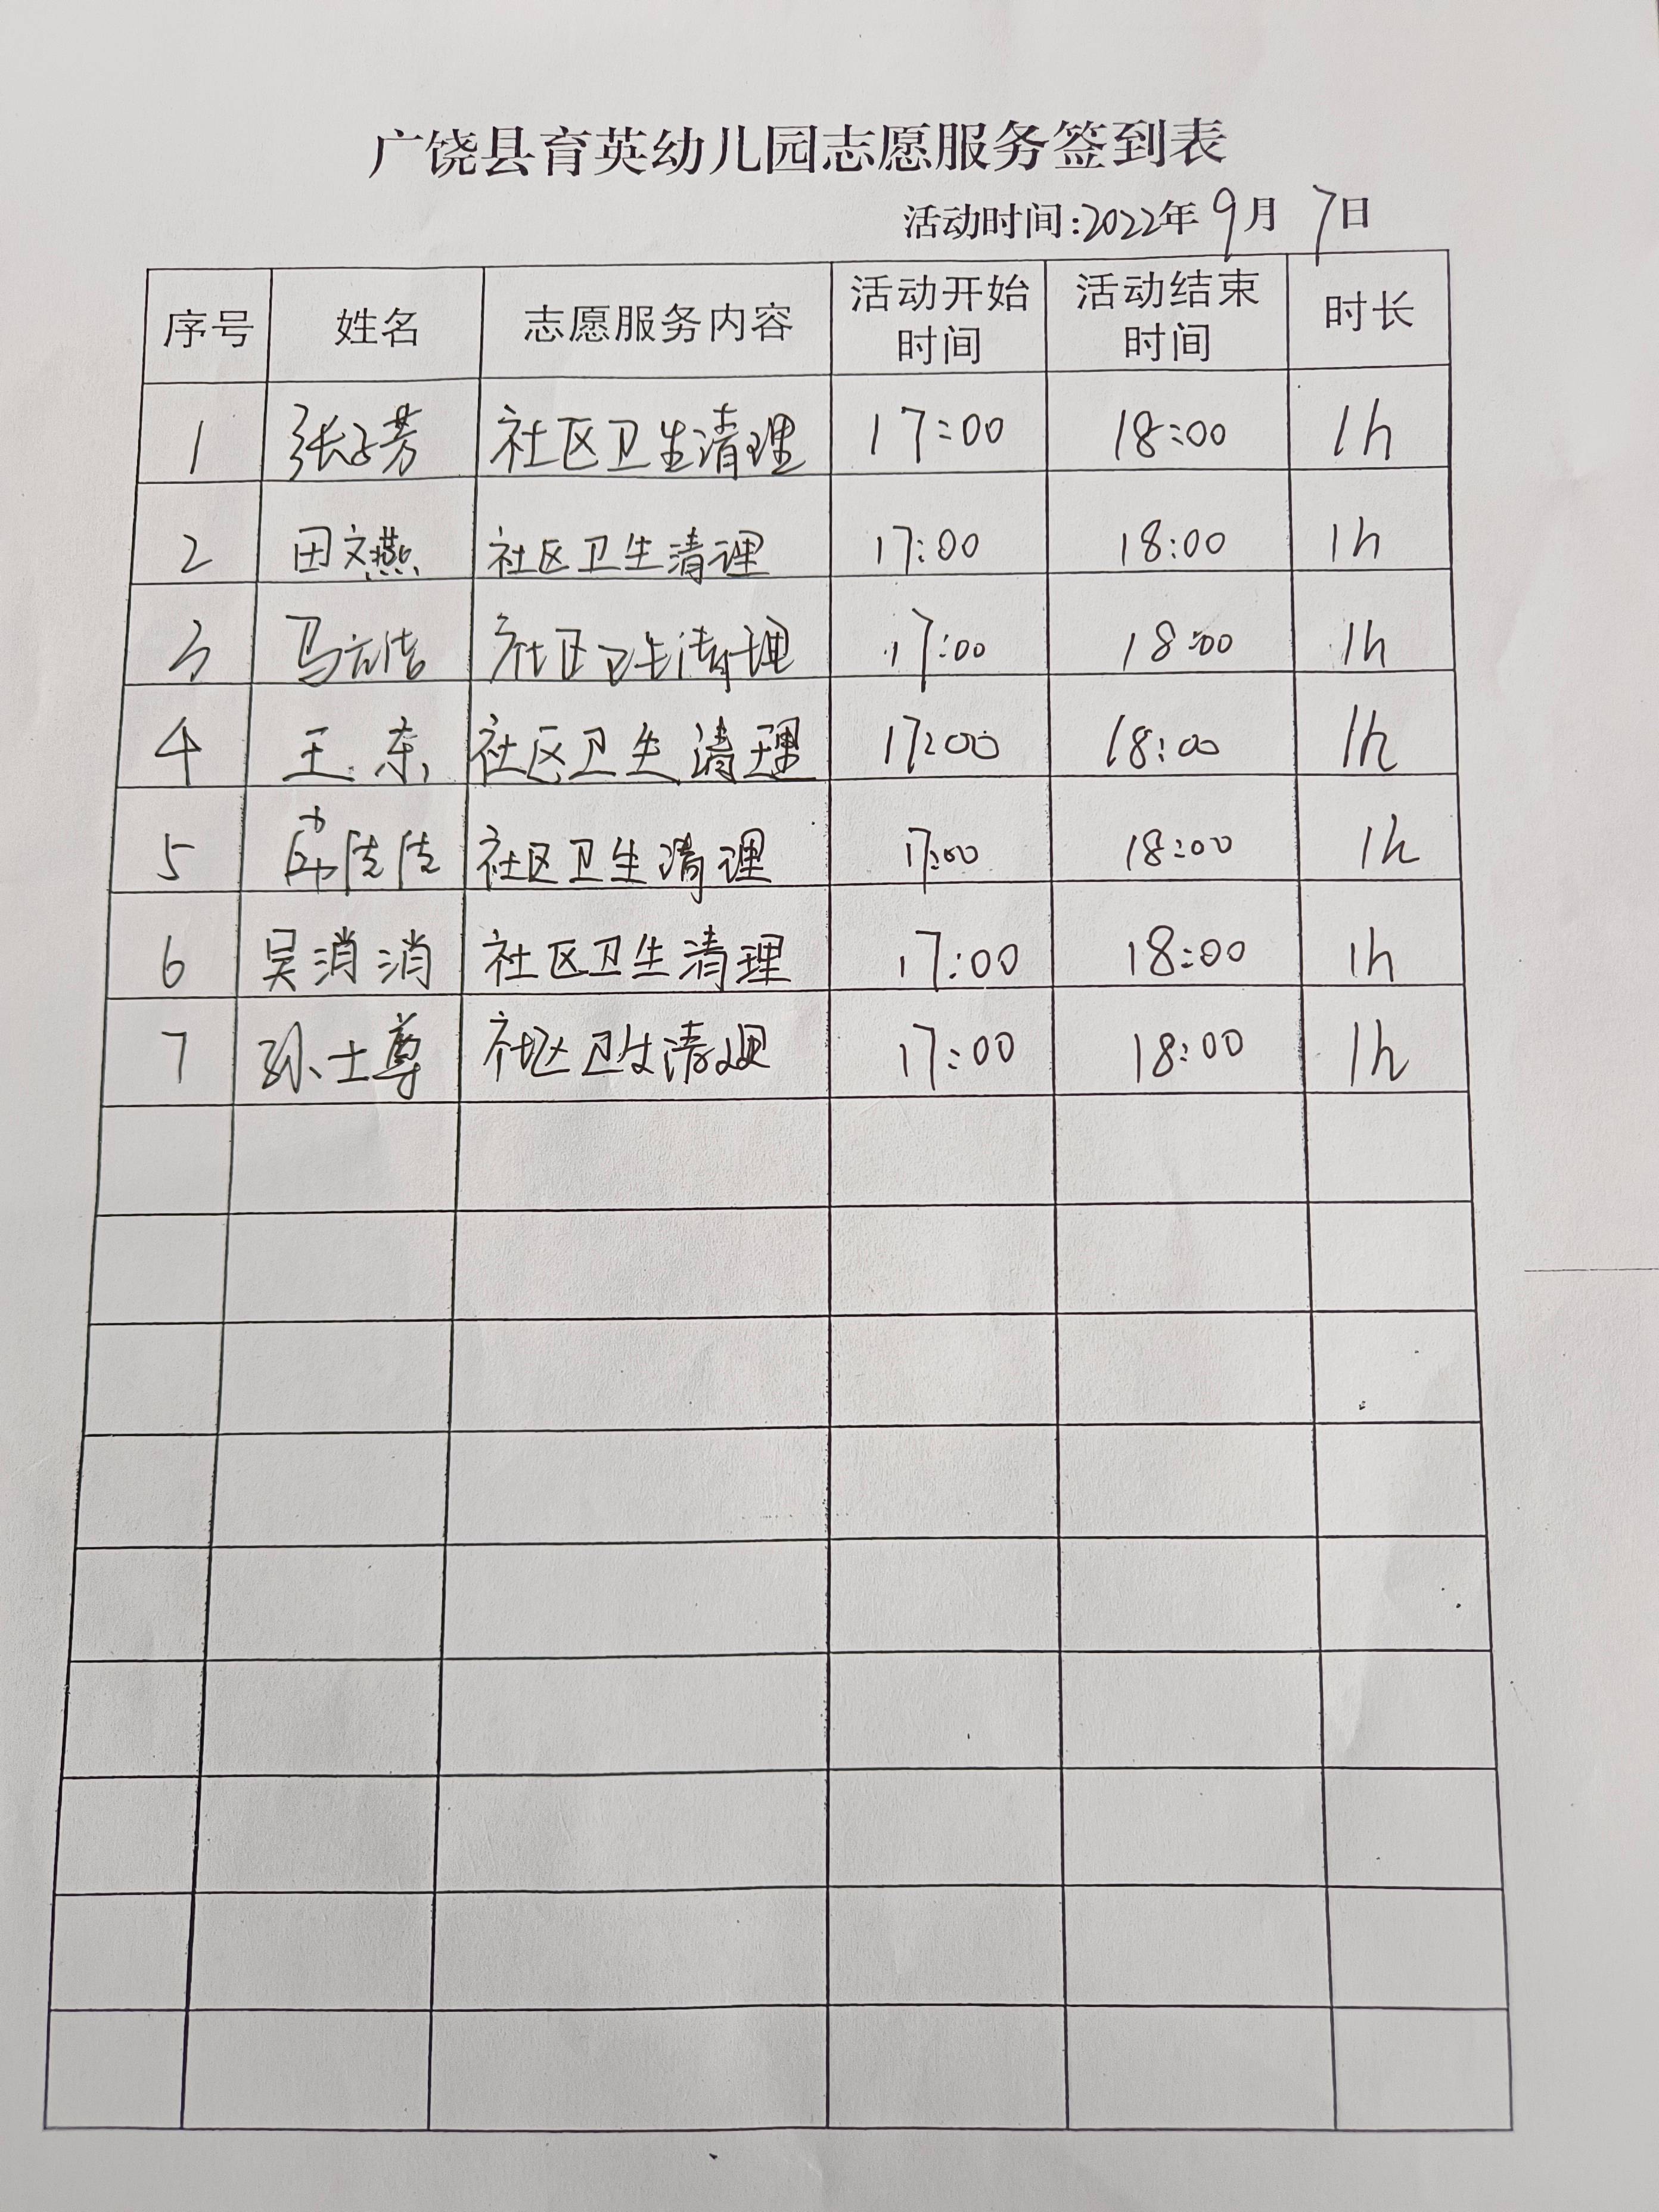 广饶县育英幼儿园志愿服务签到表
活动时间:2022年9月7日
序号 姓名 志愿服务内容 活动开始时间 活动结束时间 时长
1 张子芳 社区卫生清理 17:00 18:00 1h
2 田文燕 社区卫生清理 17:00 18:00 1h
3 马 社区卫生清理 17:00 18:00 1h
4 王东 社区卫生清理 17:00 18:00 1h
5 社区卫生清理 17:00 18:00 1h
6 吴消消 社区卫生清理 17:00 18:00 1h
7 孙士尊 社区卫生清理 17:00 18:00 1h